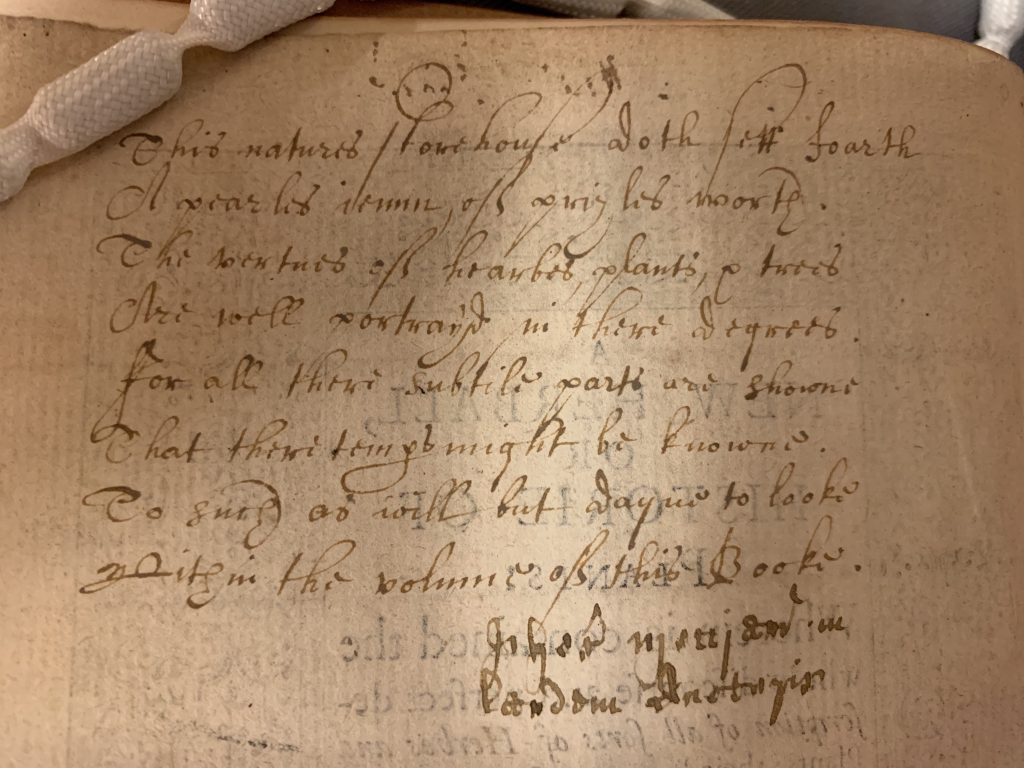 This natures storehouse doth sett foarth
A pearles iemm, off prizles worth.
The vertues off hearbes, plants, & trees
Are well portrayd in there degrees.
For all there subtile parts are showne
That there temps might be knowne.
To such as will but dayne to looke
Within the volume off this Booke.
in
NEW HERBALL,
OR
HISTORIE OF
PLANTS:
Wherein is contained the
scription of all sorts of Herbes and